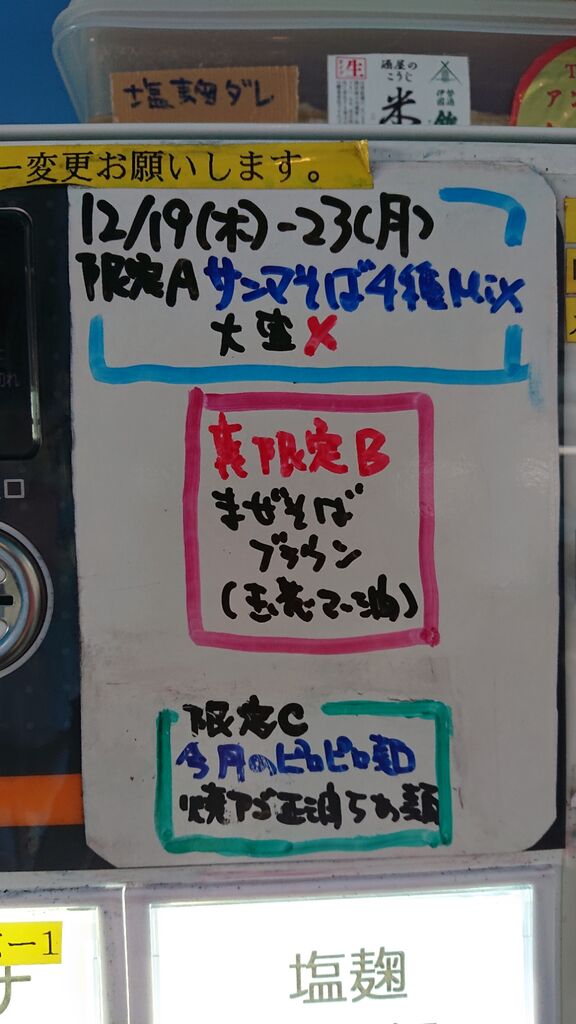 塩麹ダレ
生
酒屋の
こうじ
米
ー変更お願いします。
12/19(木)-23(月)
限定Aサンマそば4種Mix
大盛X
裏限定B
まぜそば
ブラウン
限定C
今月のピロピロ麺D
ー1
ナ
塩麹